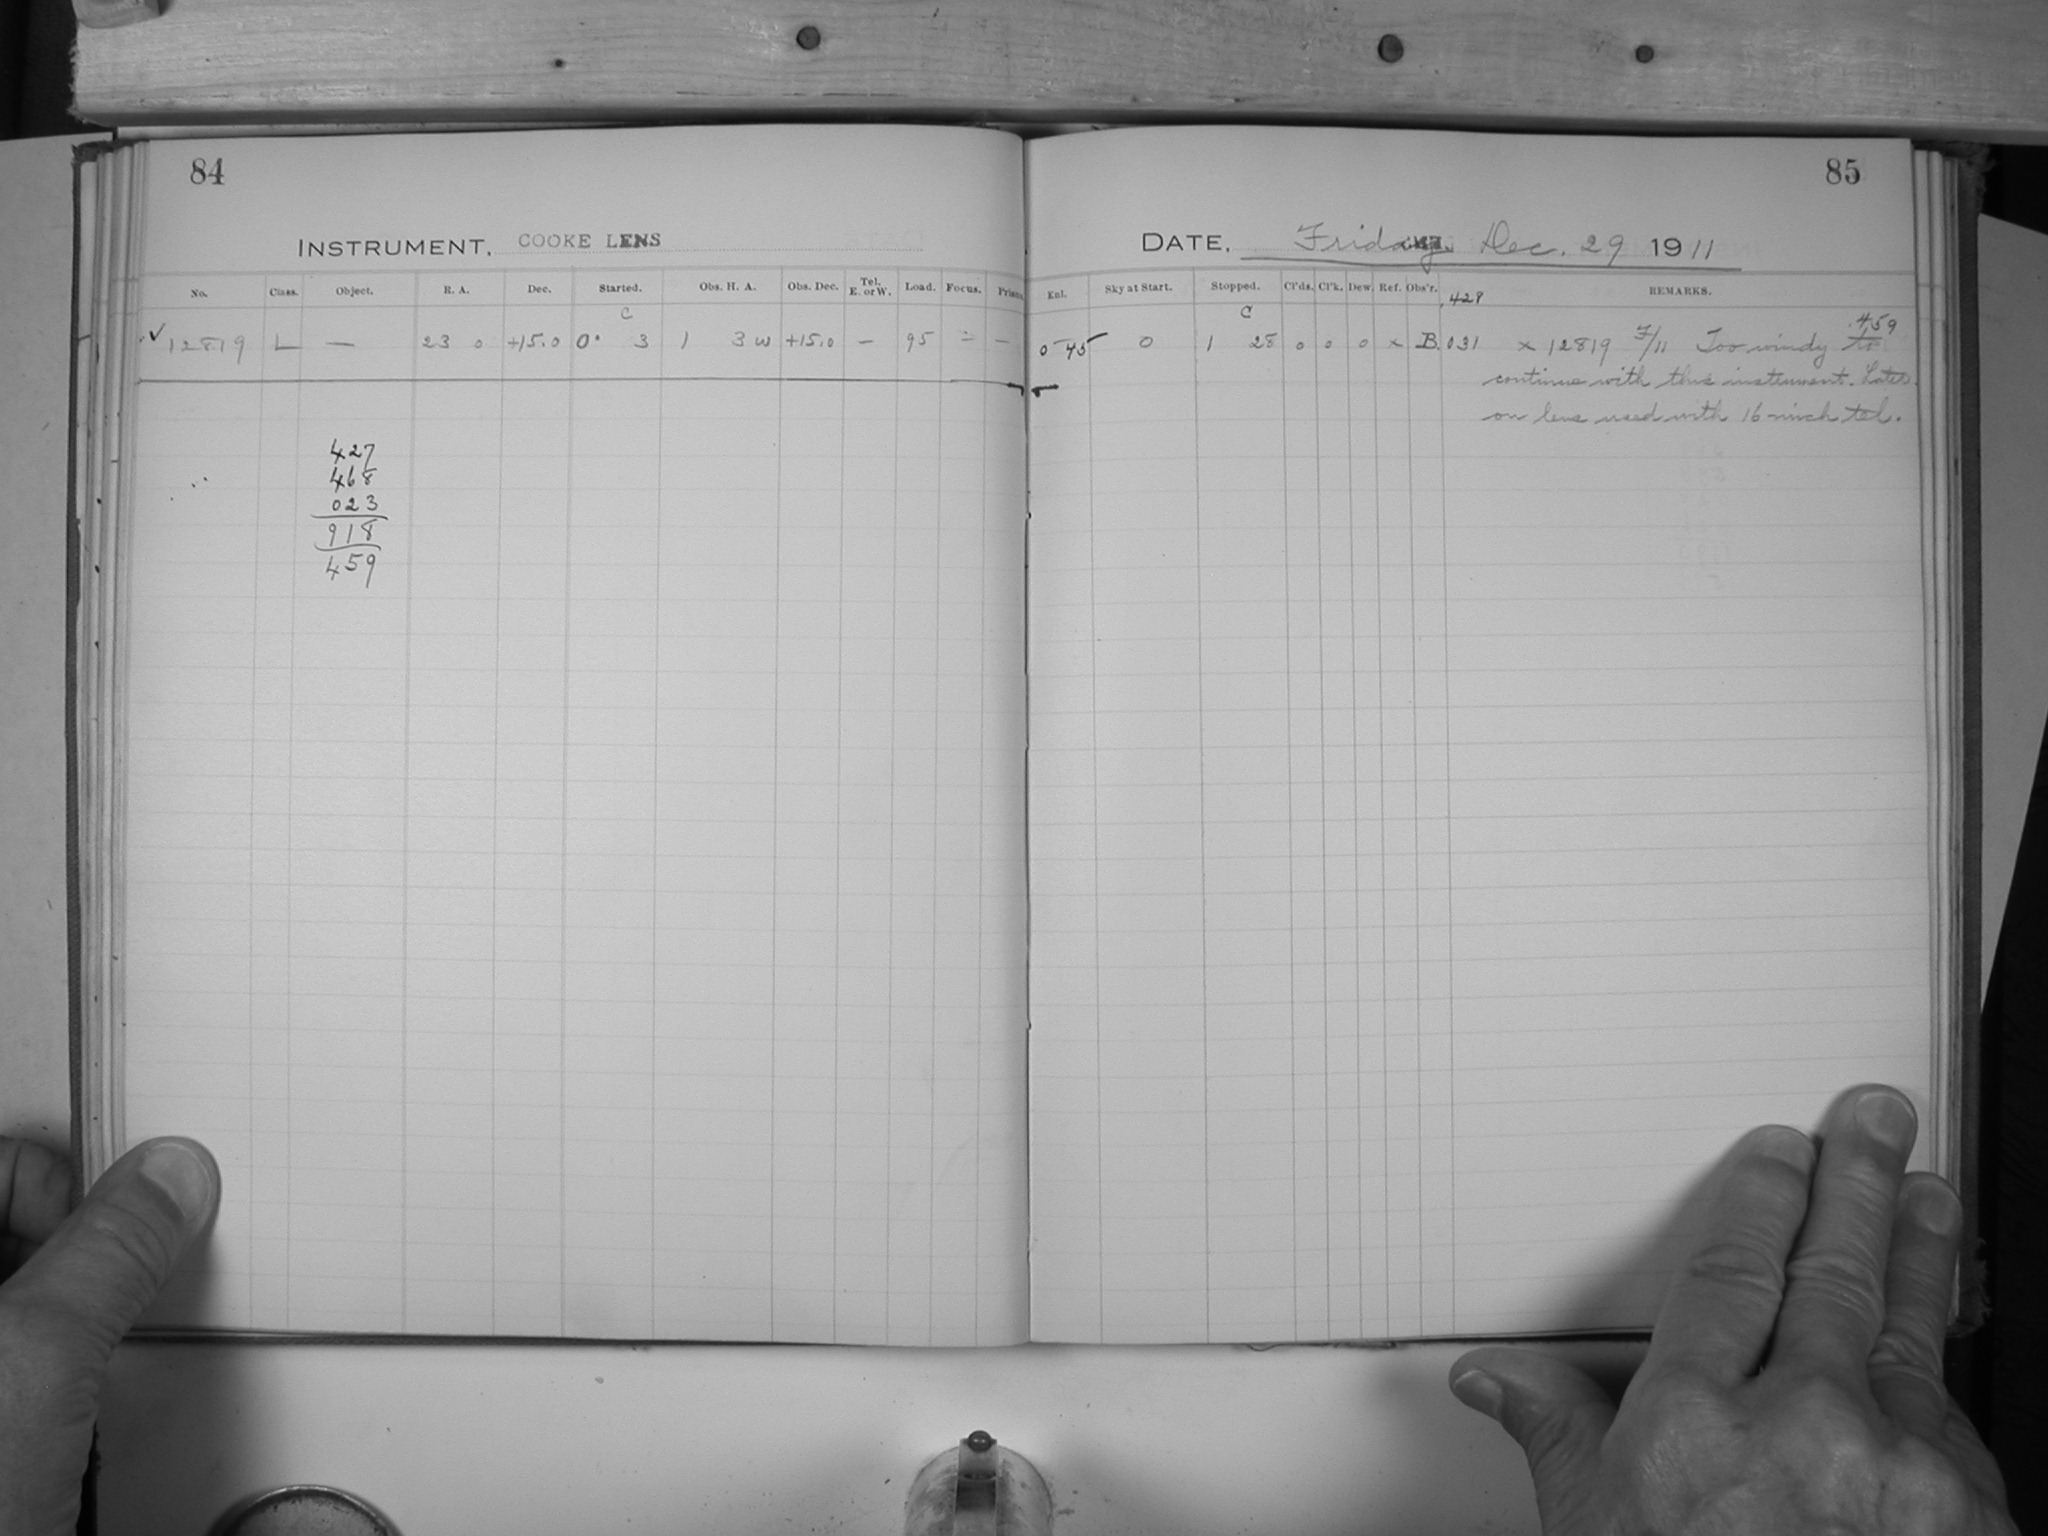 84
INSTRUMENT, COOKE LENS
No. Class. Object. R. A. Dec. Started. Obs. H. A. Obs. Dec. Tel. E. or W. Load. Focus. Prism.
C
✓ 12819 L — 23 0 +15.0 0 3 1 3 W +15.0 — 95 = —
427
468
023
918
459
85
DATE, Friday, Dec. 29 1911
Enl. Sky at Start. Stopped. Cl'ds. Cl'k. Dew. Ref. Obs'r. .428 REMARKS.
C .459
0 45 0 1 28 0 0 0 x B. 031 x 12819 F/11 Too windy to
continue with this instrument. Later
on lens used with 16-inch tel.